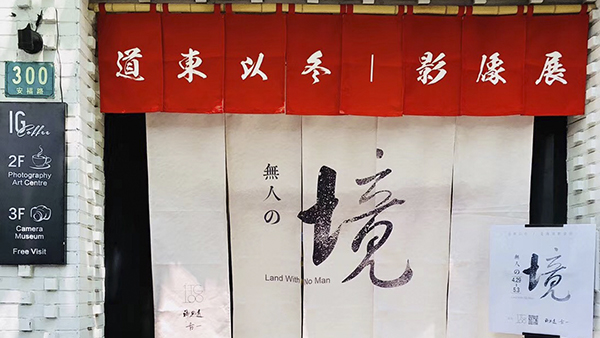 300
安福路
IG
Coffee
2F
Photography
Art Centre
3F
Camera
Museum
Free Visit
道東以冬|影像展
無人の
境
Land With No Man
無人の
境
4.25
5.3